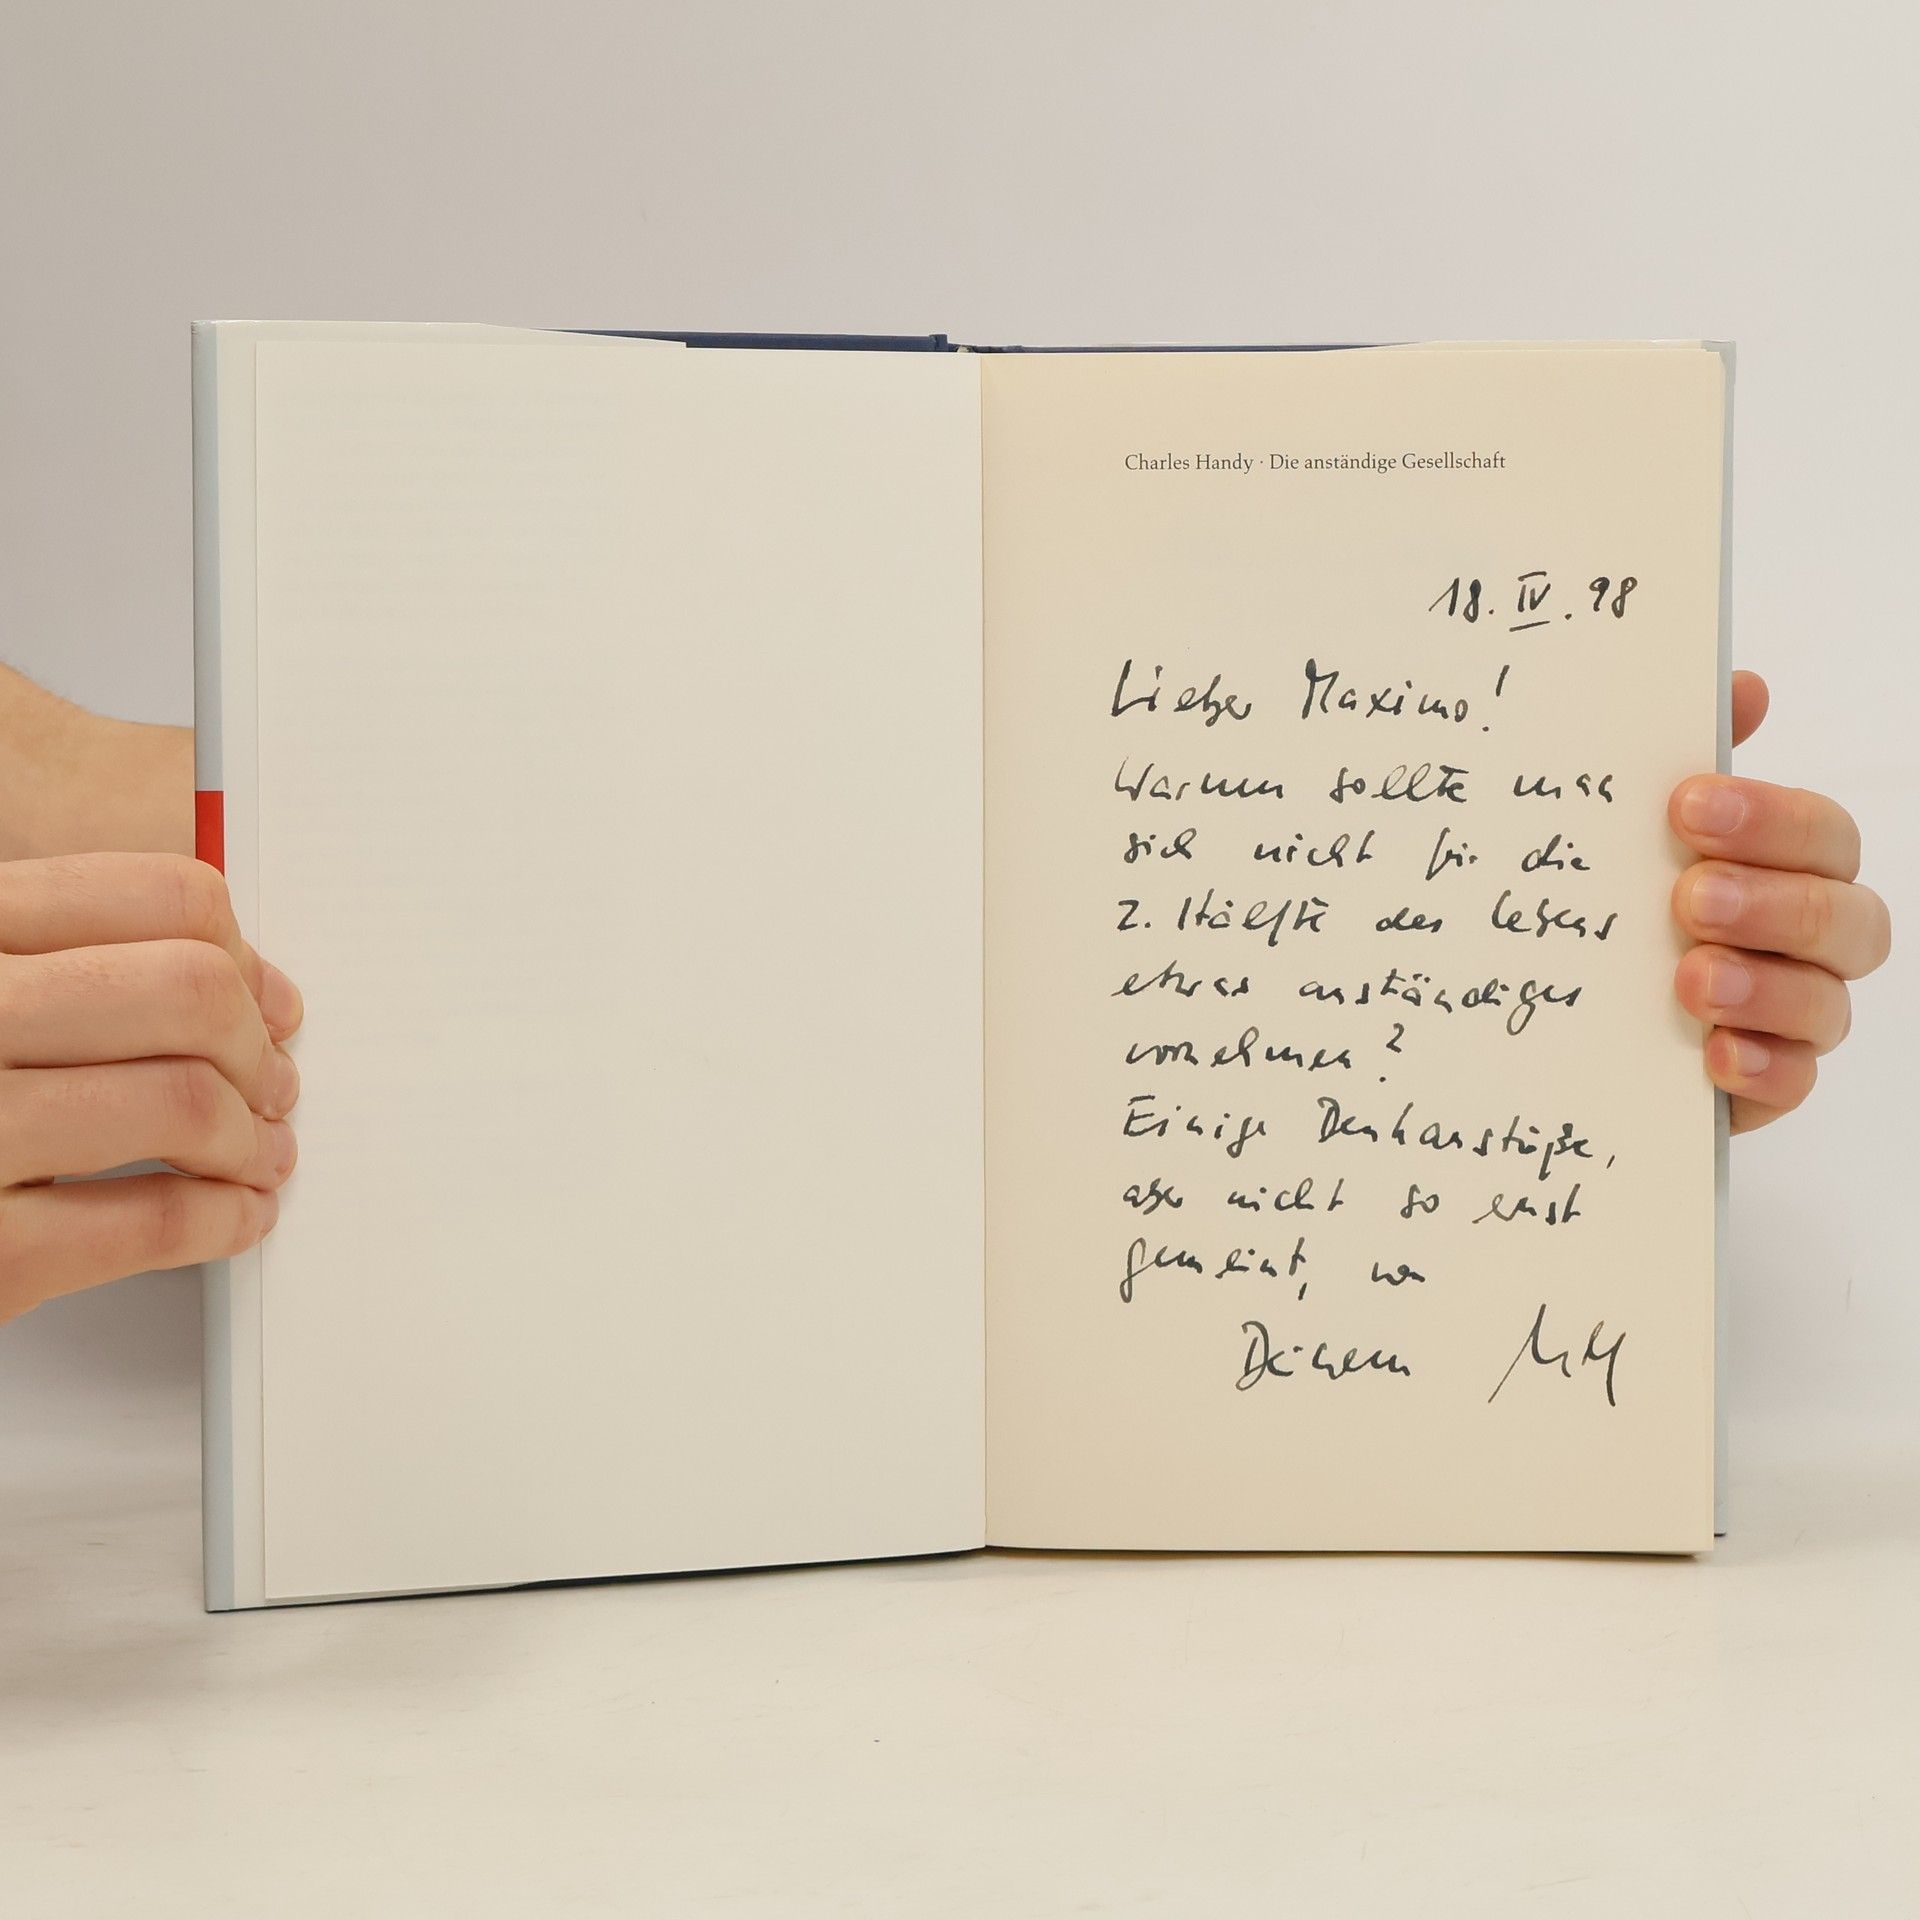 Charles Handy · Die anständige Gesellschaft
18. IV. 98
Lieber Maximo!
Warum sollte man
sich nicht für die
2. Hälfte des Lebens
etwas anständiges
vornehmen?
Einige Denkanstöße,
aber nicht so ernst
gemeint, von
Deinem